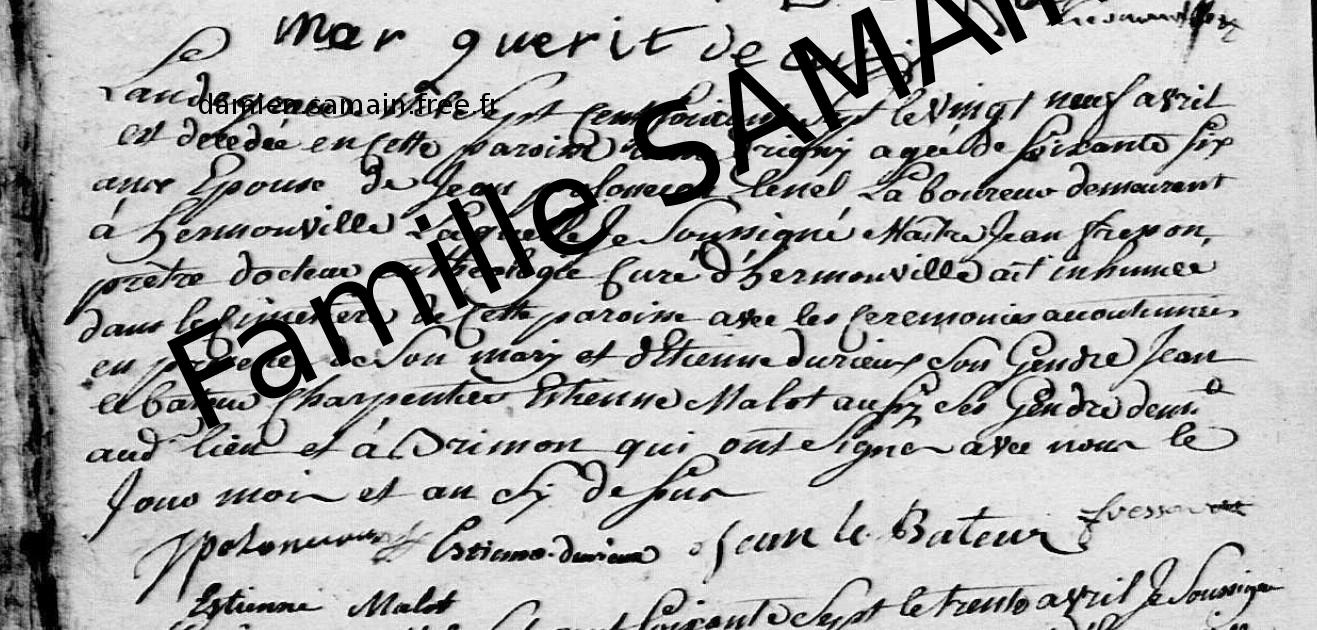 Mar guerit de
Lan de grace mil Sept Cent Soixante Sept le vingt neuf avril
est decedée en Cette paroisse agée de Soixante Six
ans Epouse de Jean Laboureur demeurant
à hermonville Laquelle Je Soussigné Maitre Jean
pretre docteur en theologie Curé d'hermonville ait inhumée
dans le Cimetiere de Cette paroisse avec les Ceremonies accoutumées
en presence de Son mary et d'Etienne durieux Son Gendre Jean
le bateur Charpentier Estienne Malot aussy Ses Gendre
aud lieu et à Drimon qui ont Signer avec nous le
Jour mois et an Sy dessus
Estienne durieux Jean le Bateur
Estienne Malot
Soixante Sept le trente avril Je Soussigne
Famille SAMA
damien.samain.free.fr